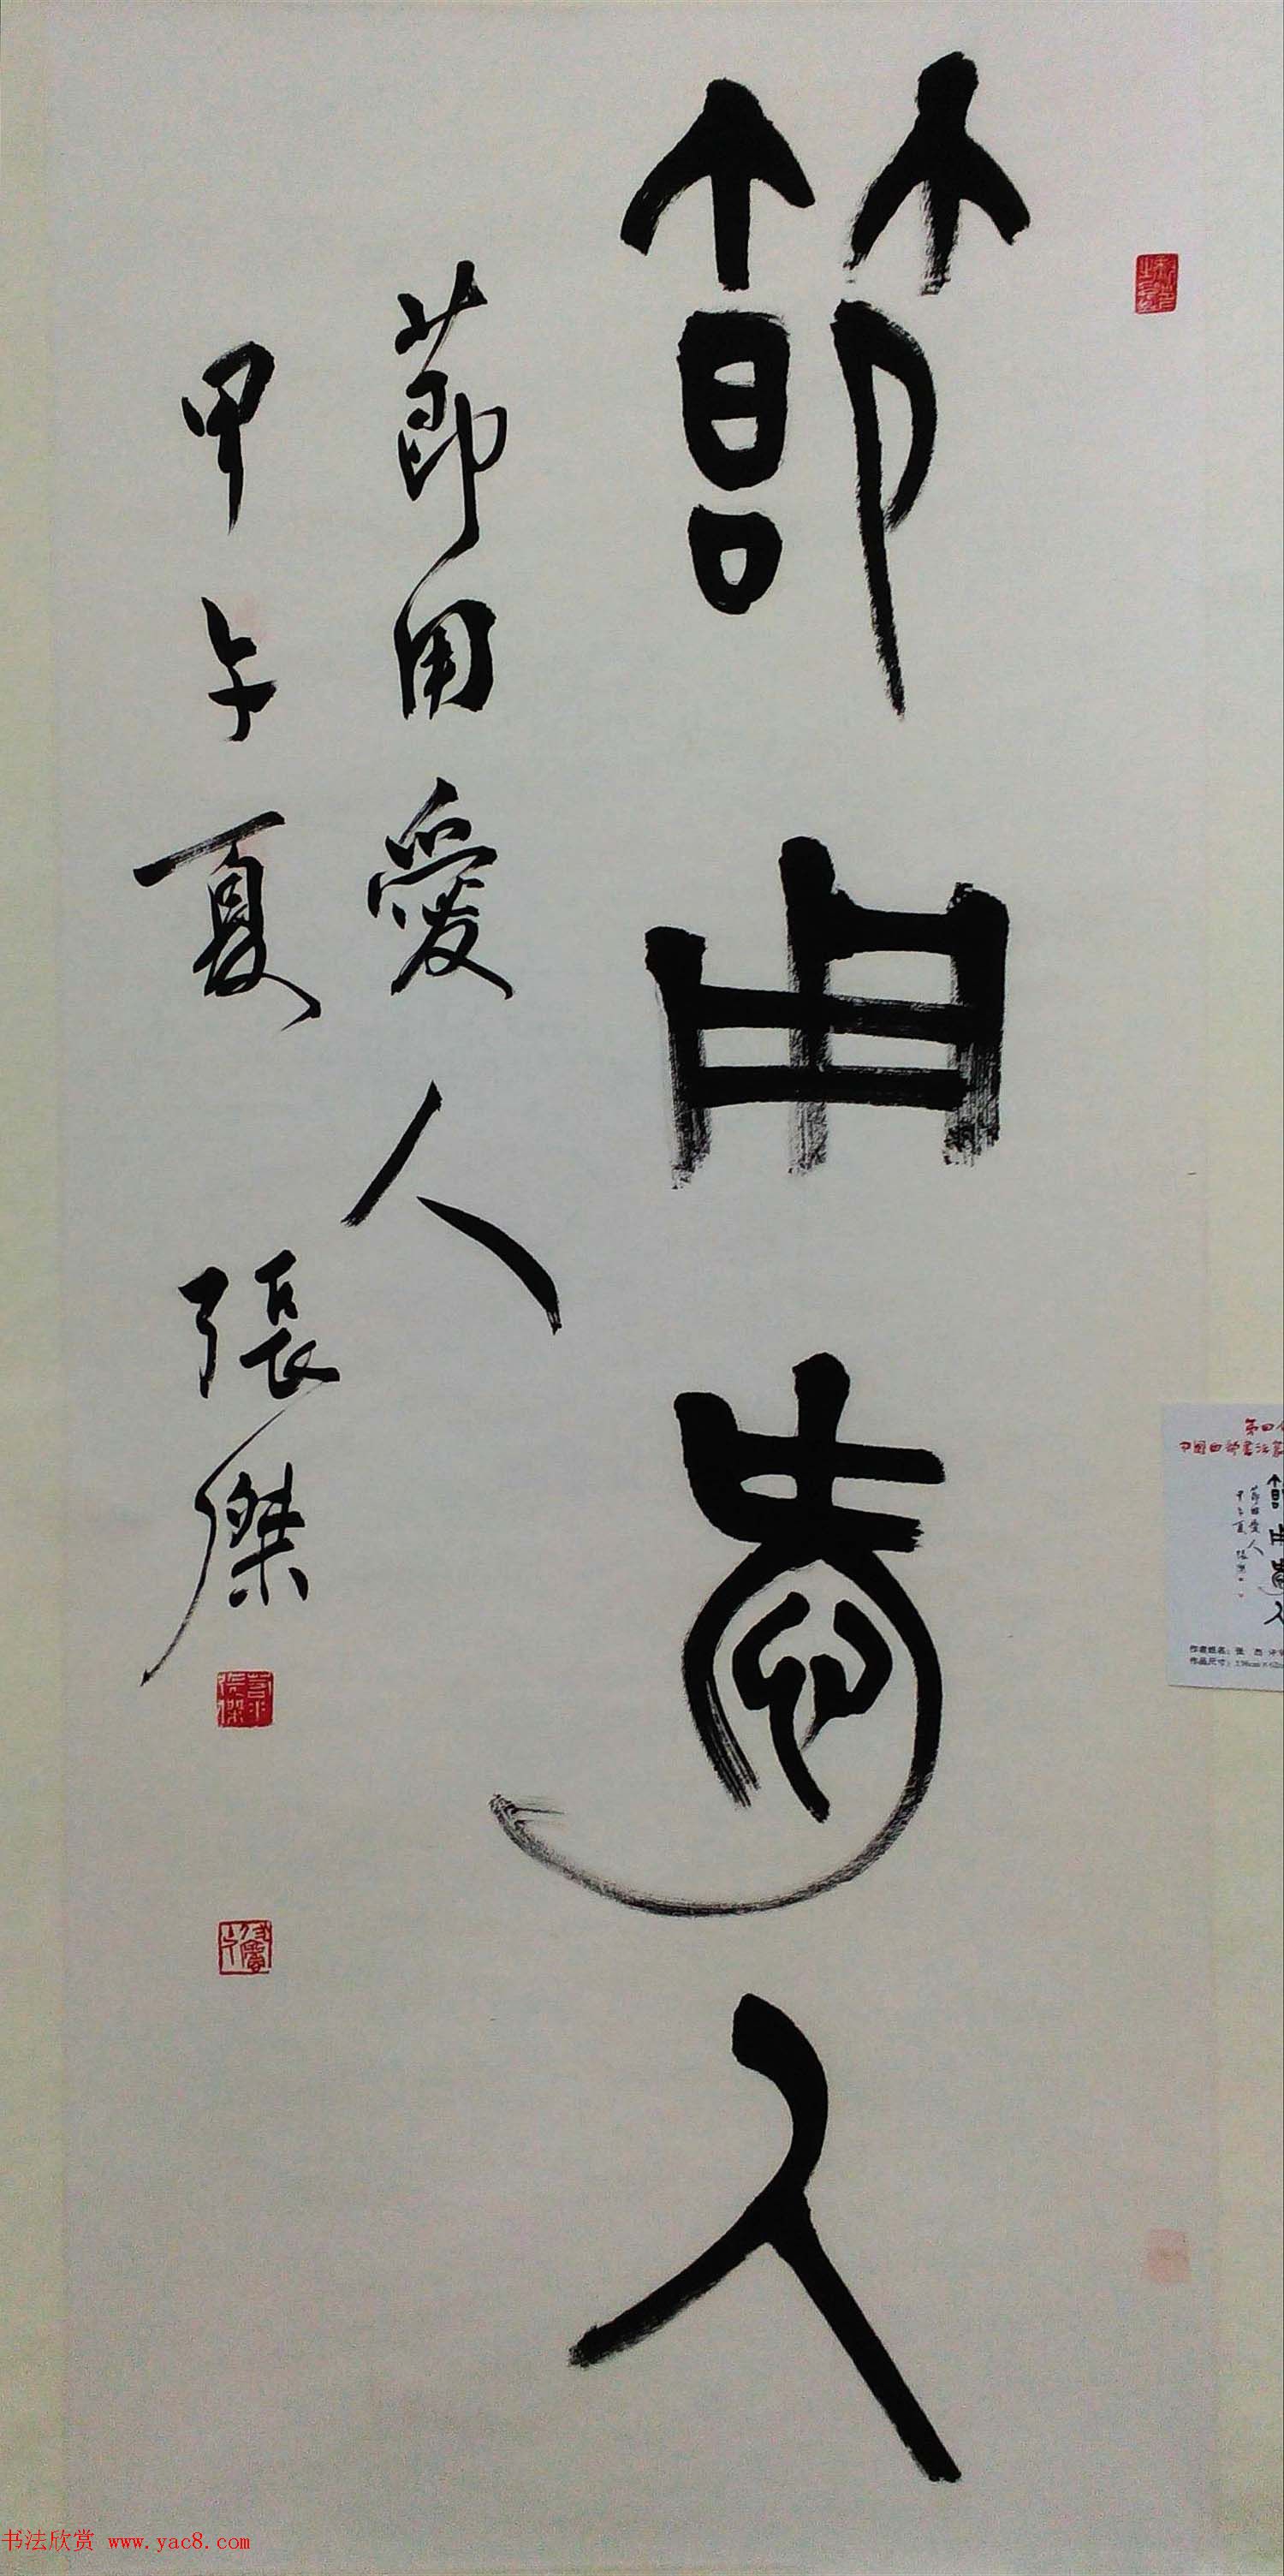 節用愛人
節用愛人
甲午夏 張傑
中國西部書法篆
節用愛人
節用愛人
甲午夏 張傑
作者姓名：张 杰
作品尺寸：
书法欣赏 www.yac8.com